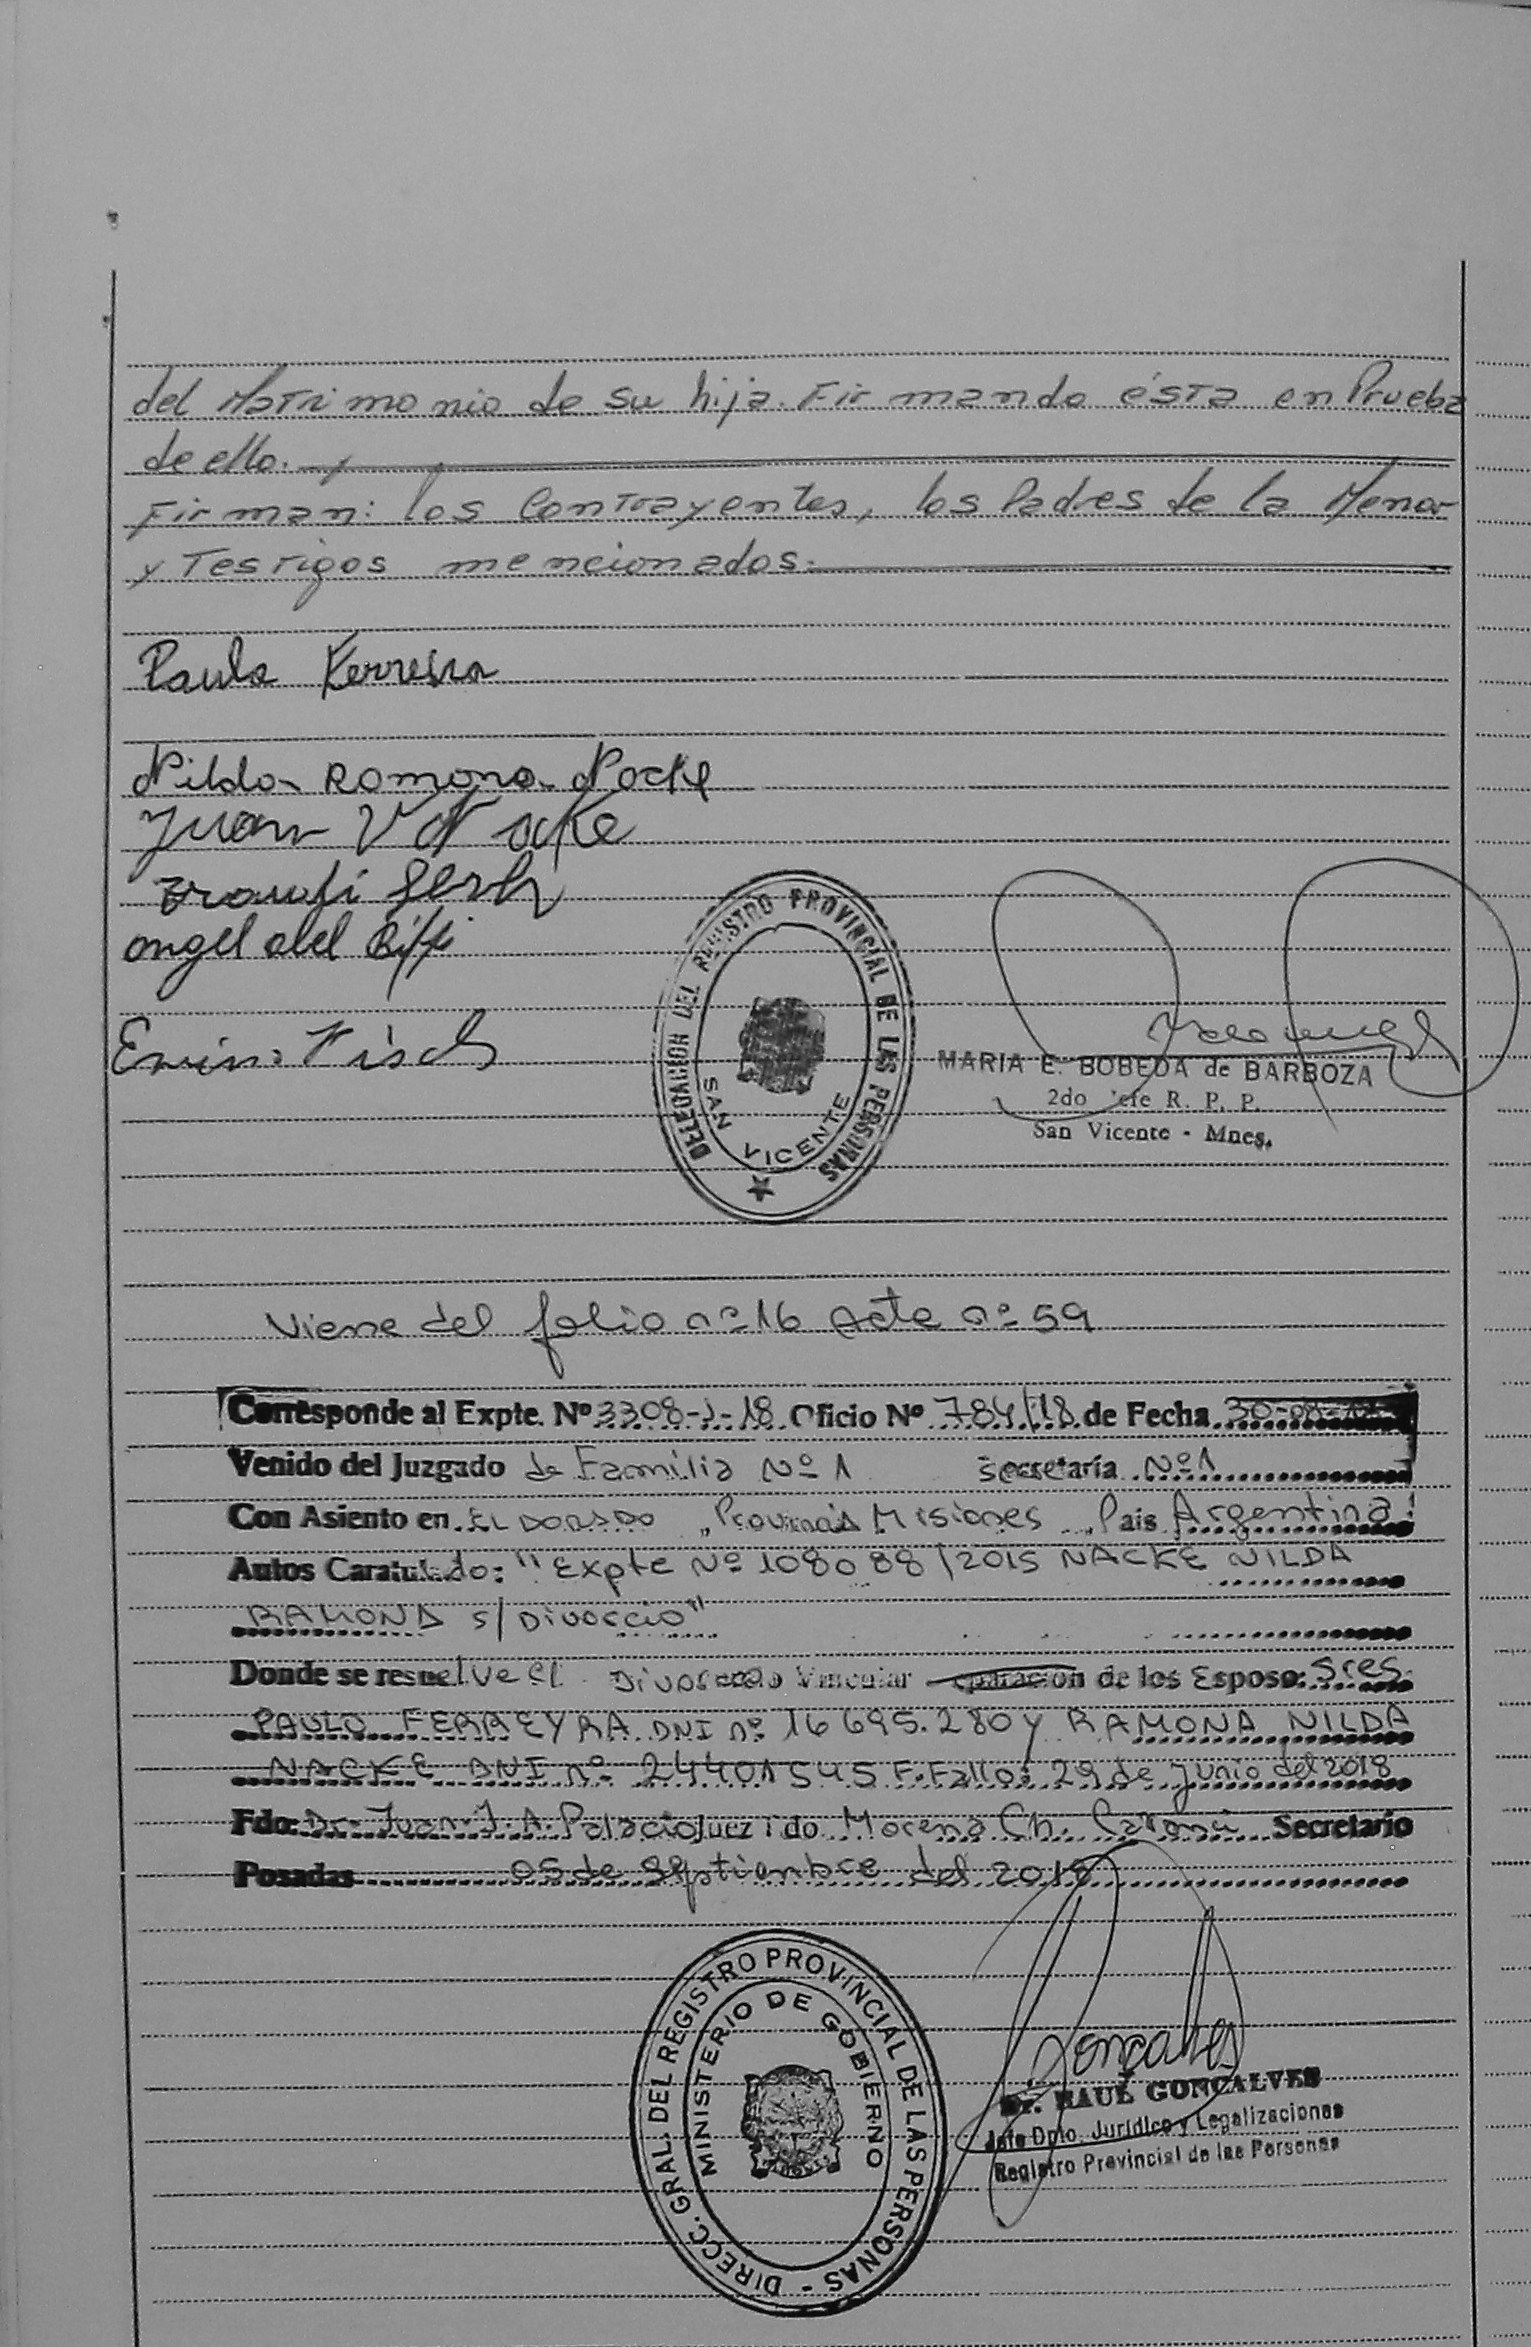 del Matrimonio de su hija. Firmando ésta en Prueba
de ello.
Firman: los Contrayentes, los Padres de la Menor
y Testigos mencionados.
Paulo Ferreira
Nilda Romona Nacke
Juan V Nacke
angel abel
Erwin Fisch
DELEGACION DEL REGISTRO PROVINCIAL DE LAS PERSONAS
SAN VICENTE
MARIA E. BOBEDA de BARBOZA
2do Jefe R. P. P.
San Vicente - Mnes.
Viene del folio nº 16 Acta nº 59
Corresponde al Expte. Nº 3308-J-18 Oficio Nº 784/18 de Fecha 30-08-
Venido del Juzgado de Familia Nº 1 Secretaría Nº 1
Con Asiento en ELDORADO Provincia Misiones País Argentina
Autos Caratulado: "Expte Nº 108088/2015 NACKE NILDA
RAMONA s/ Divorcio"
Donde se resuelve el Divorcio Vincular de los Esposo: Sres
PAULO FERREYRA DNI nº 16 695.280 y RAMONA NILDA
NACKE DNI nº 24401545 F. Fallo: 29 de junio del 2018
Fdo: Dr. Juan J. A. Palacio Juez Fdo Morena Ch. Secretario
Posadas 05 de Septiembre del 2018
DIRECC. GRAL. DEL REGISTRO PROVINCIAL DE LAS PERSONAS -
MINISTERIO DE GOBIERNO
Gonçalves
Dr. RAUL GONÇALVES
Jefe Dpto. Jurídico y Legalizaciones
Registro Provincial de las Personas